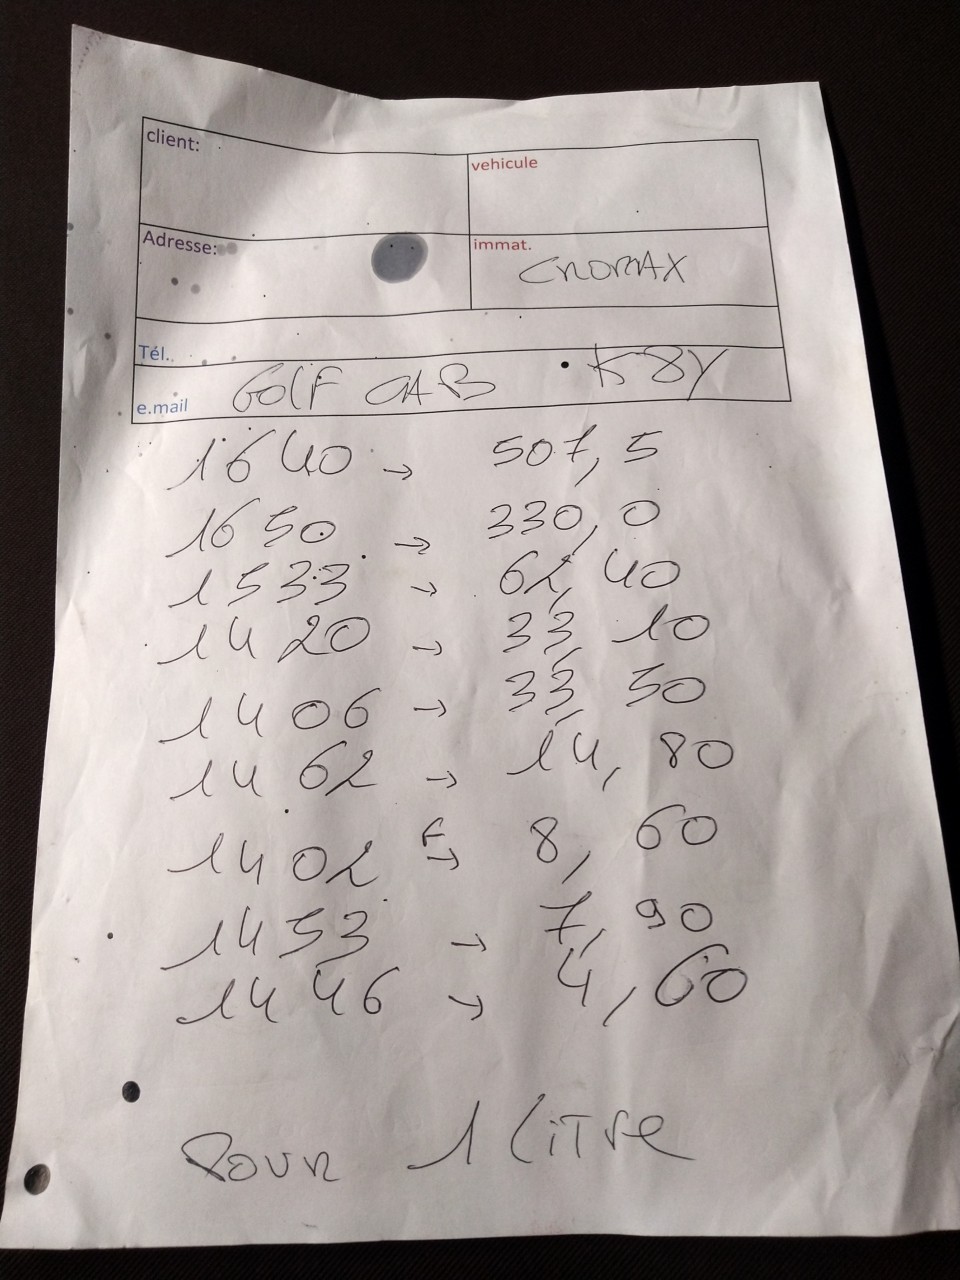 client:
vehicule
Adresse:
immat.
CROMAX
Tél.
e.mail GOLF CAB K8Y
1640 → 507,5
1650 → 330,0
1533 → 62,40
1420 → 33,10
1406 → 33,50
1462 → 14,80
1402 → 8,60
1453 → 7,90
1446 → 4,60
Pour 1 LiTre